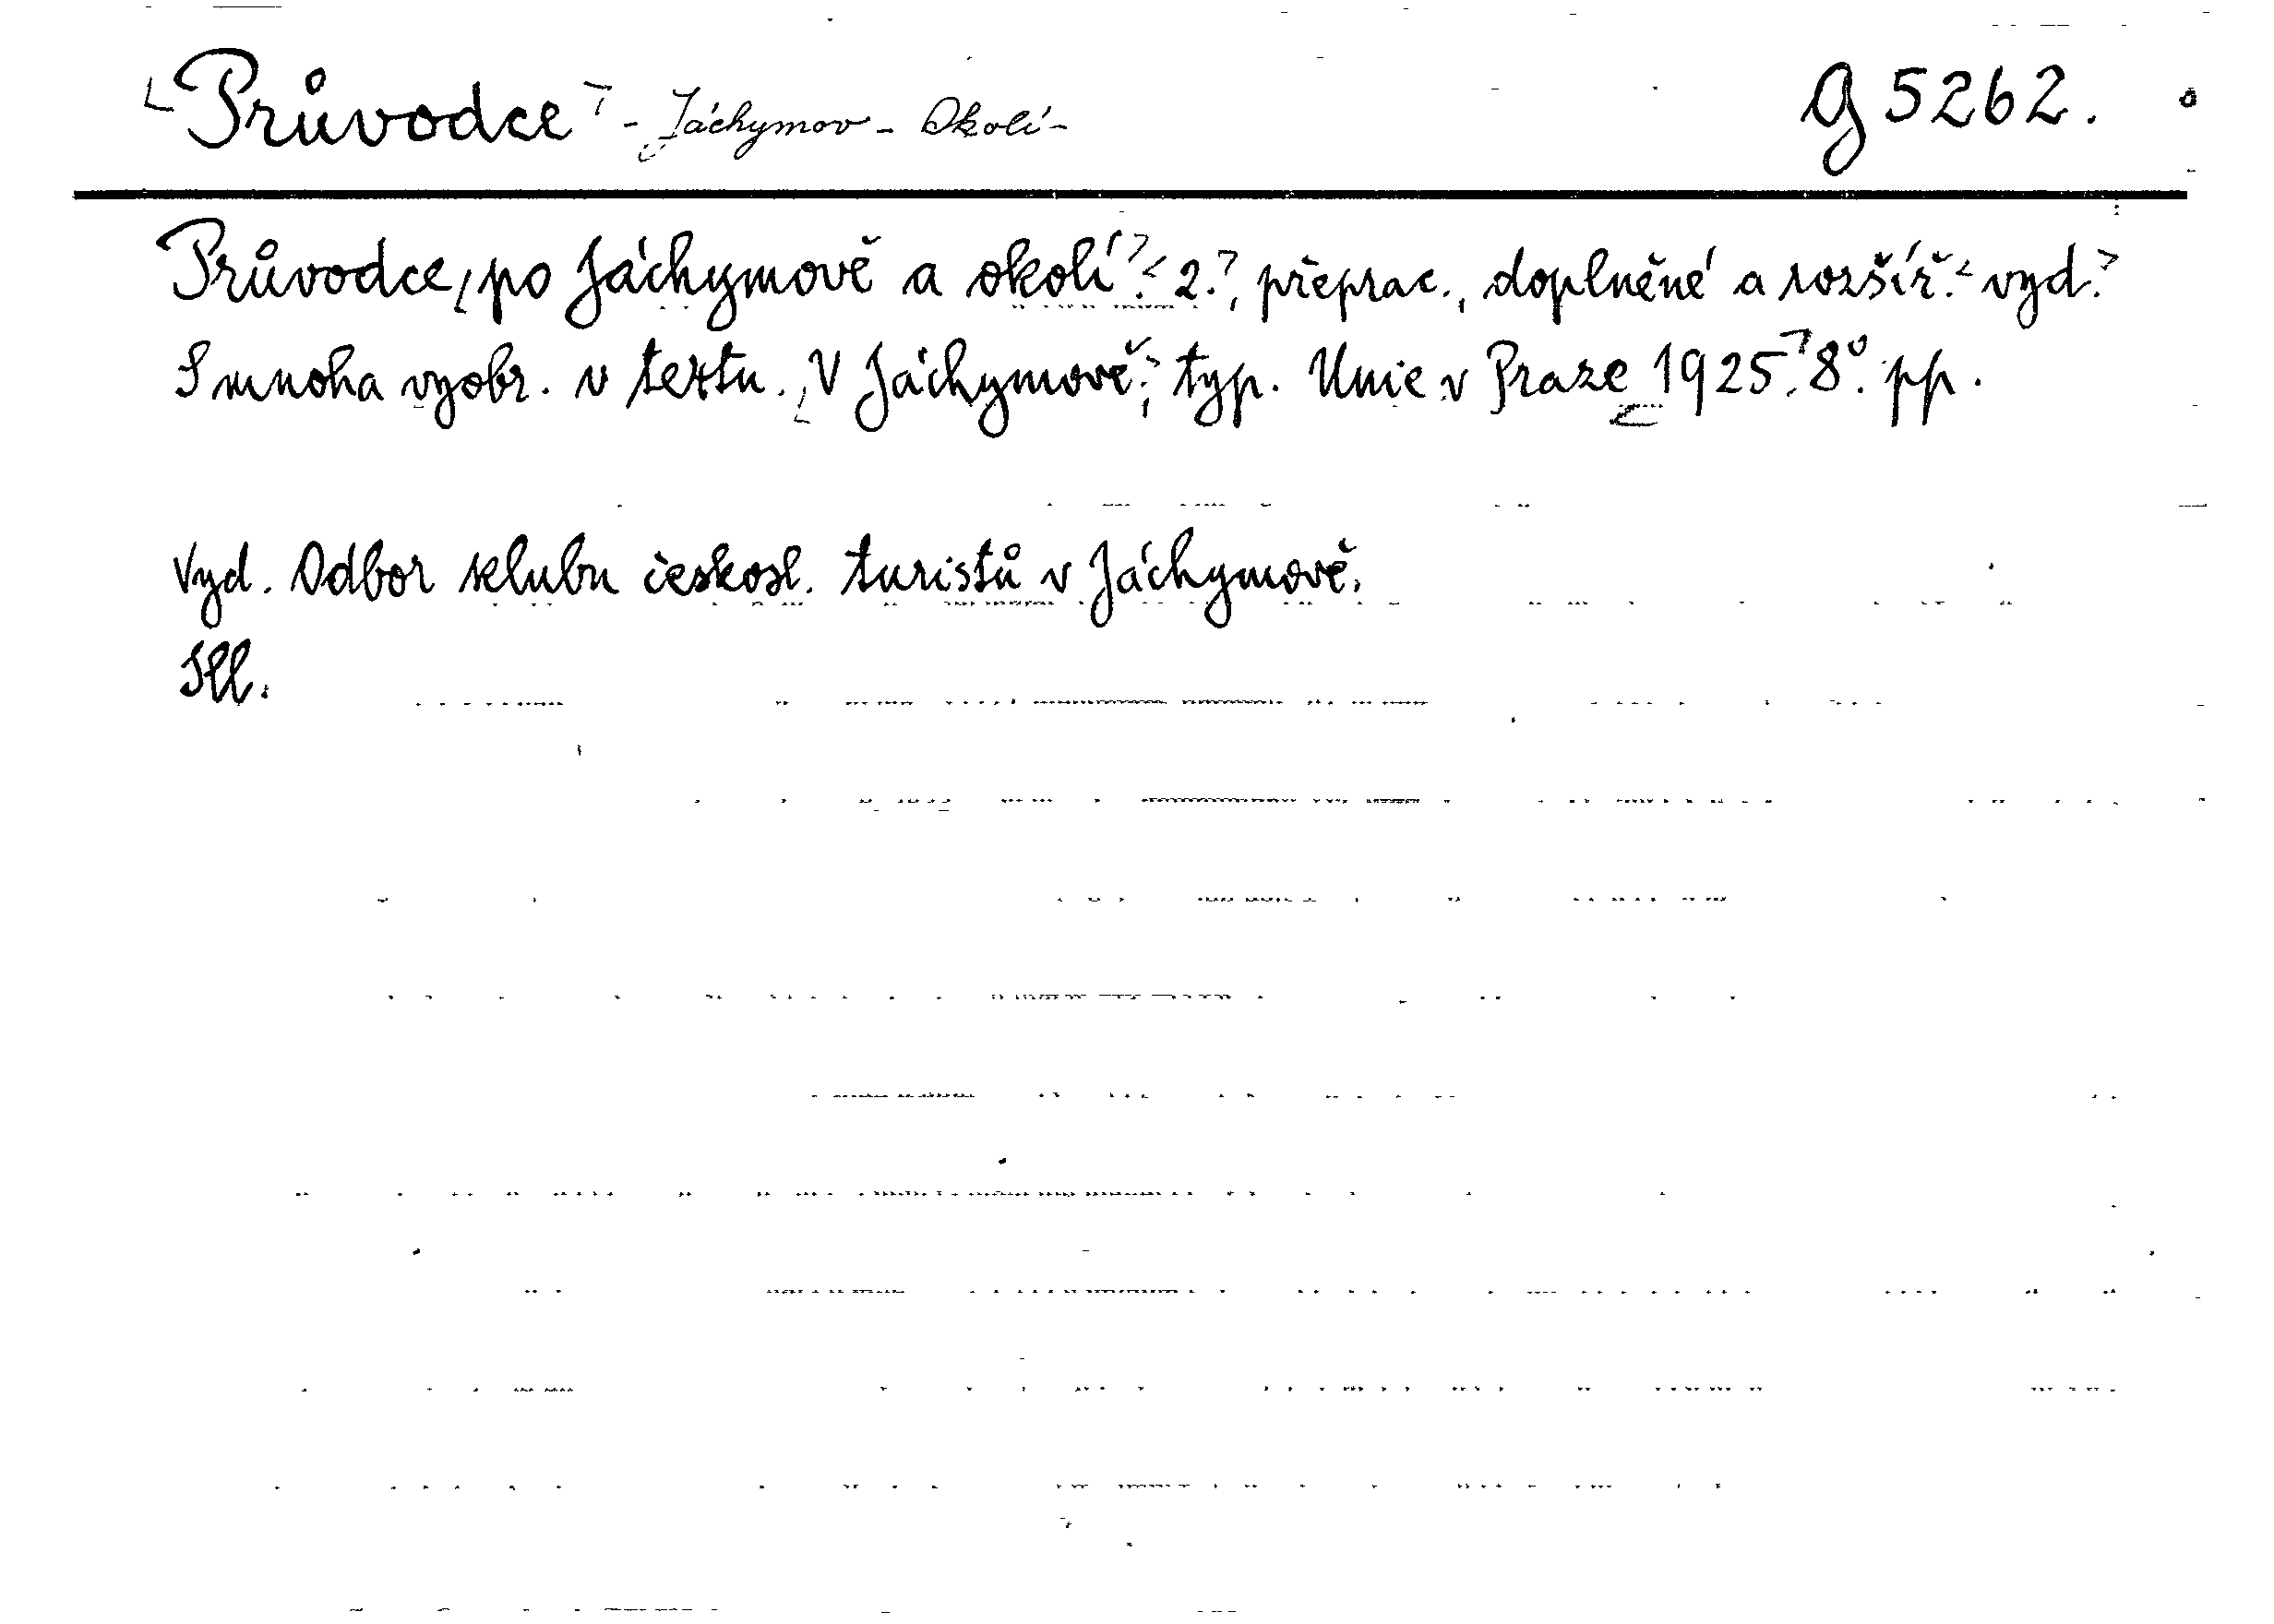 Průvodce - Jáchymov - Okolí - G 5262.
Průvodce po Jáchymově a okolí. 2., přeprac., doplněné a rozšíř. vyd.
S mnoha vyobr. v textu. V Jáchymově, typ. Unie v Praze 1925. 8°. pp.
Vyd. Odbor klubu českosl. turistů v Jáchymově.
Ill.